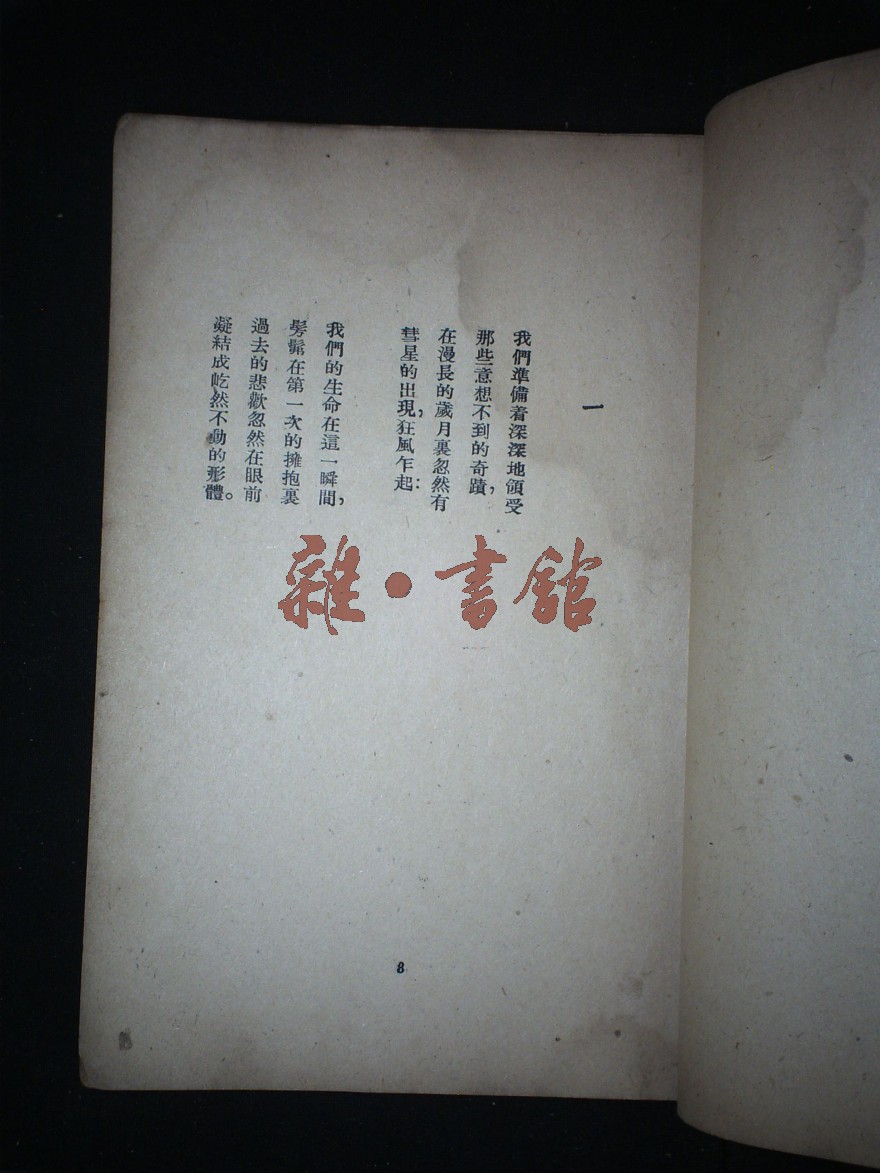 一
我們準備着深深地領受
那些意想不到的奇蹟，
在漫長的歲月裏忽然有
彗星的出現，狂風乍起：
我們的生命在這一瞬間，
髣髴在第一次的擁抱裏
過去的悲歡忽然在眼前
凝結成屹然不動的形體。
雜·書館
8